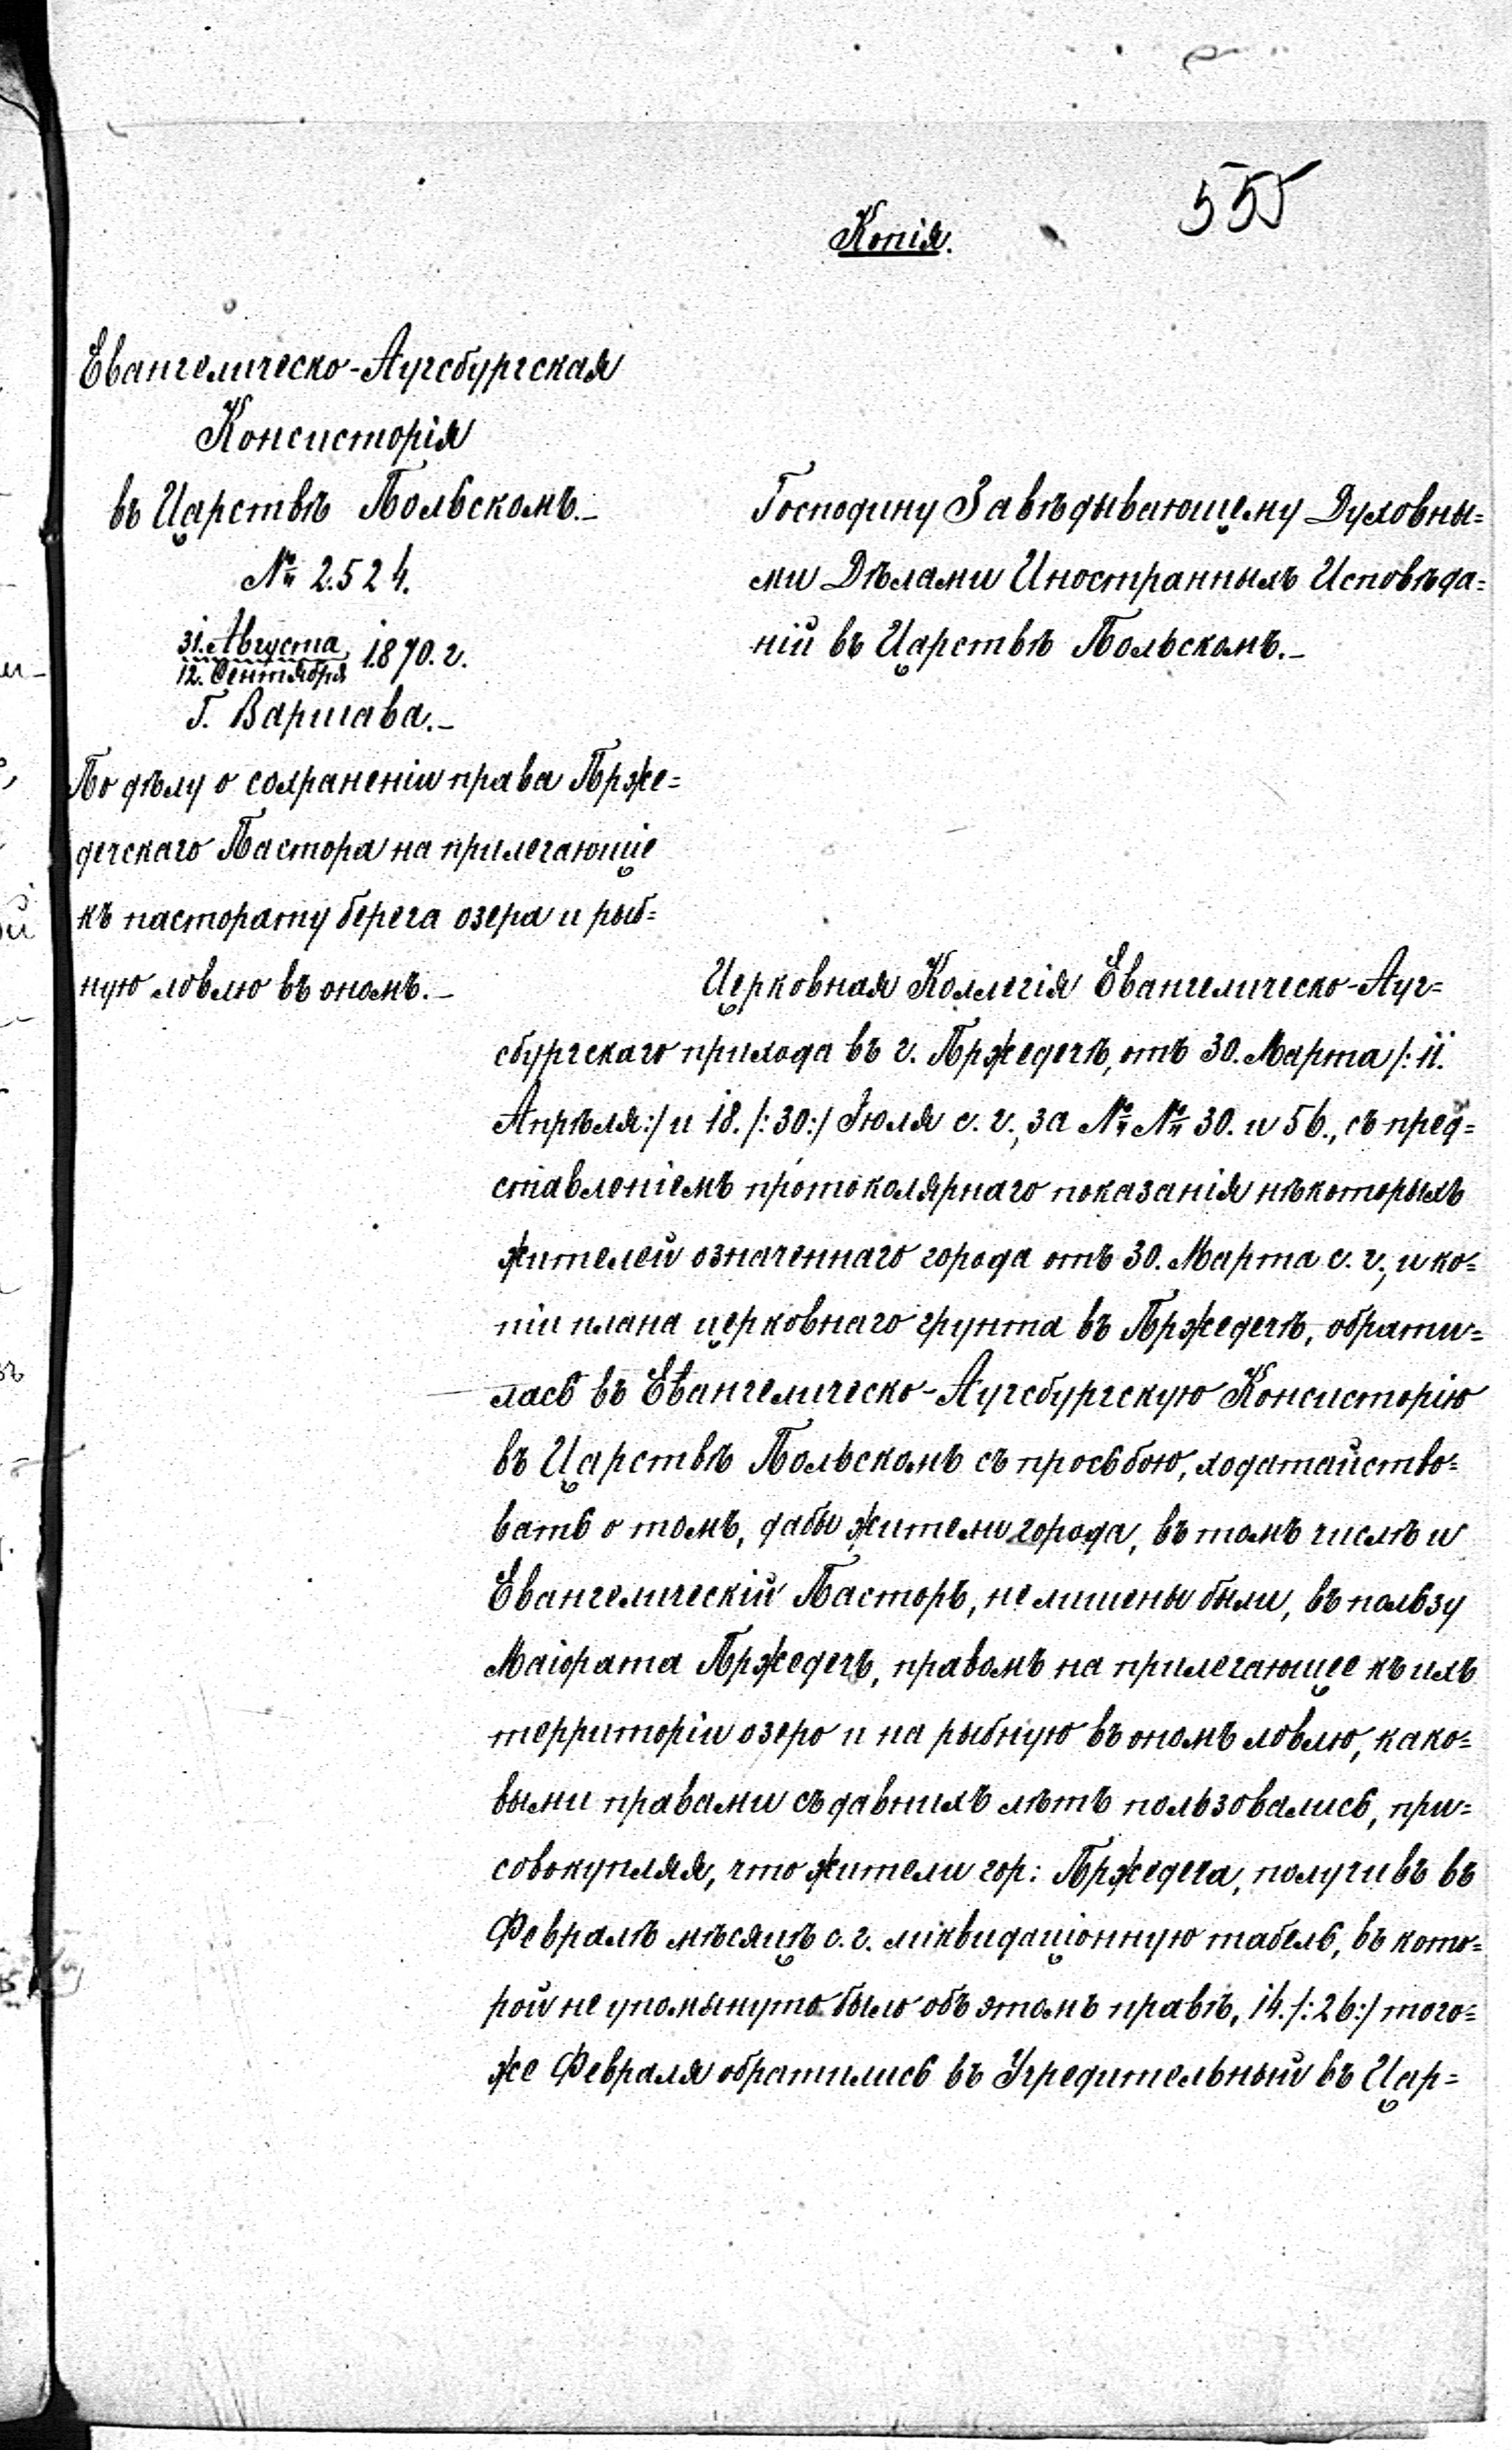 555
Копія.
Евангелическо-Аугсбургская
Консисторія
въ Царствѣ Польскомъ.-
№ 2524.
31. Августа
12. Сентября 1870. г.
Г. Варшава.-
По дѣлу о сохраненіи права Прже=
дечскаго Пастора на прилегающіе
къ пасторату берега озера и рыб=
ную ловлю въ ономъ.-
Господину Завѣдывающему Духовны=
ми Дѣлами Иностранныхъ Исповѣда=
ній въ Царствѣ Польскомъ.-
Церковная Коллегія Евангелическо-Ауг=
сбургскаго прихода въ г. Пржедечѣ, отъ 30. Марта /: 11.
Апрѣля:/ и 18. /:30:/ Іюля с. г., за №№ 30. и 56., съ пред=
ставленіемъ протоколярнаго показанія нѣкоторыхъ
жителей означеннаго города отъ 30. Марта с. г., и ко=
піи плана церковнаго грунта въ Пржедечѣ, обрати=
лась въ Евангелическо-Аугсбургскую Консисторію
въ Царствѣ Польскомъ съ просьбою, ходатайство=
вать о томъ, дабы жители города, въ томъ числѣ и
Евангелическій Пасторъ, не лишены были, въ пользу
Маіората Пржедечъ, правомъ на прилегающее къ ихъ
территоріи озеро и на рыбную въ ономъ ловлю, како=
выми правами съ давнихъ лѣтъ пользовались, при=
совокупляя, что жители гор: Пржедеча, получивъ въ
Февралѣ мѣсяцѣ с. г. ликвидаціонную табель, въ кото=
рой не упомянуто было объ этомъ правѣ, 14. /:26:/ того=
же Февраля обратились въ Учредительный въ Цар=